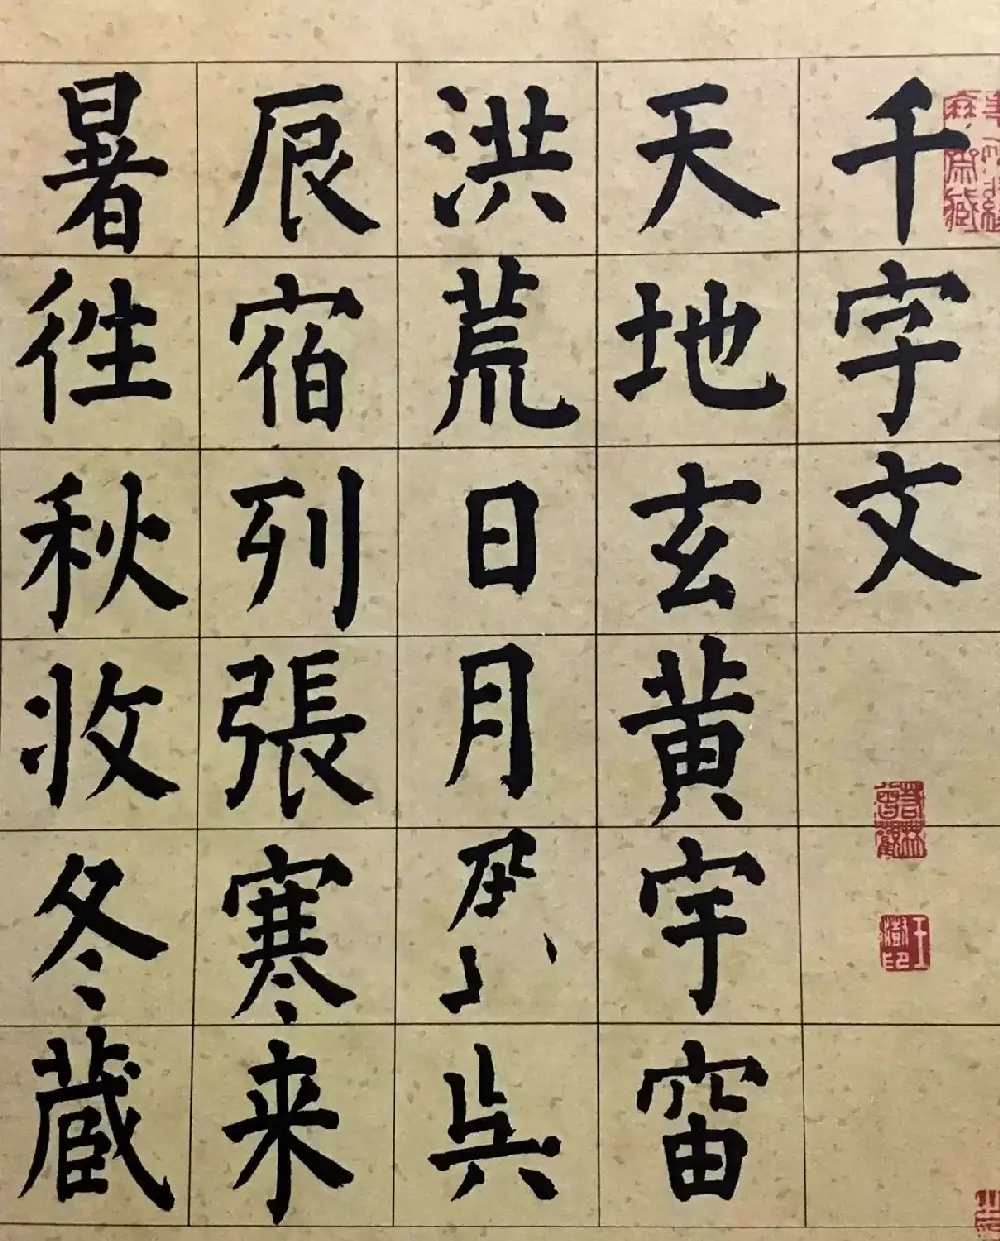 千字文
天地玄黄宇
洪荒日月
辰宿列張寒来
暑徃秋收冬蔵
王澍印